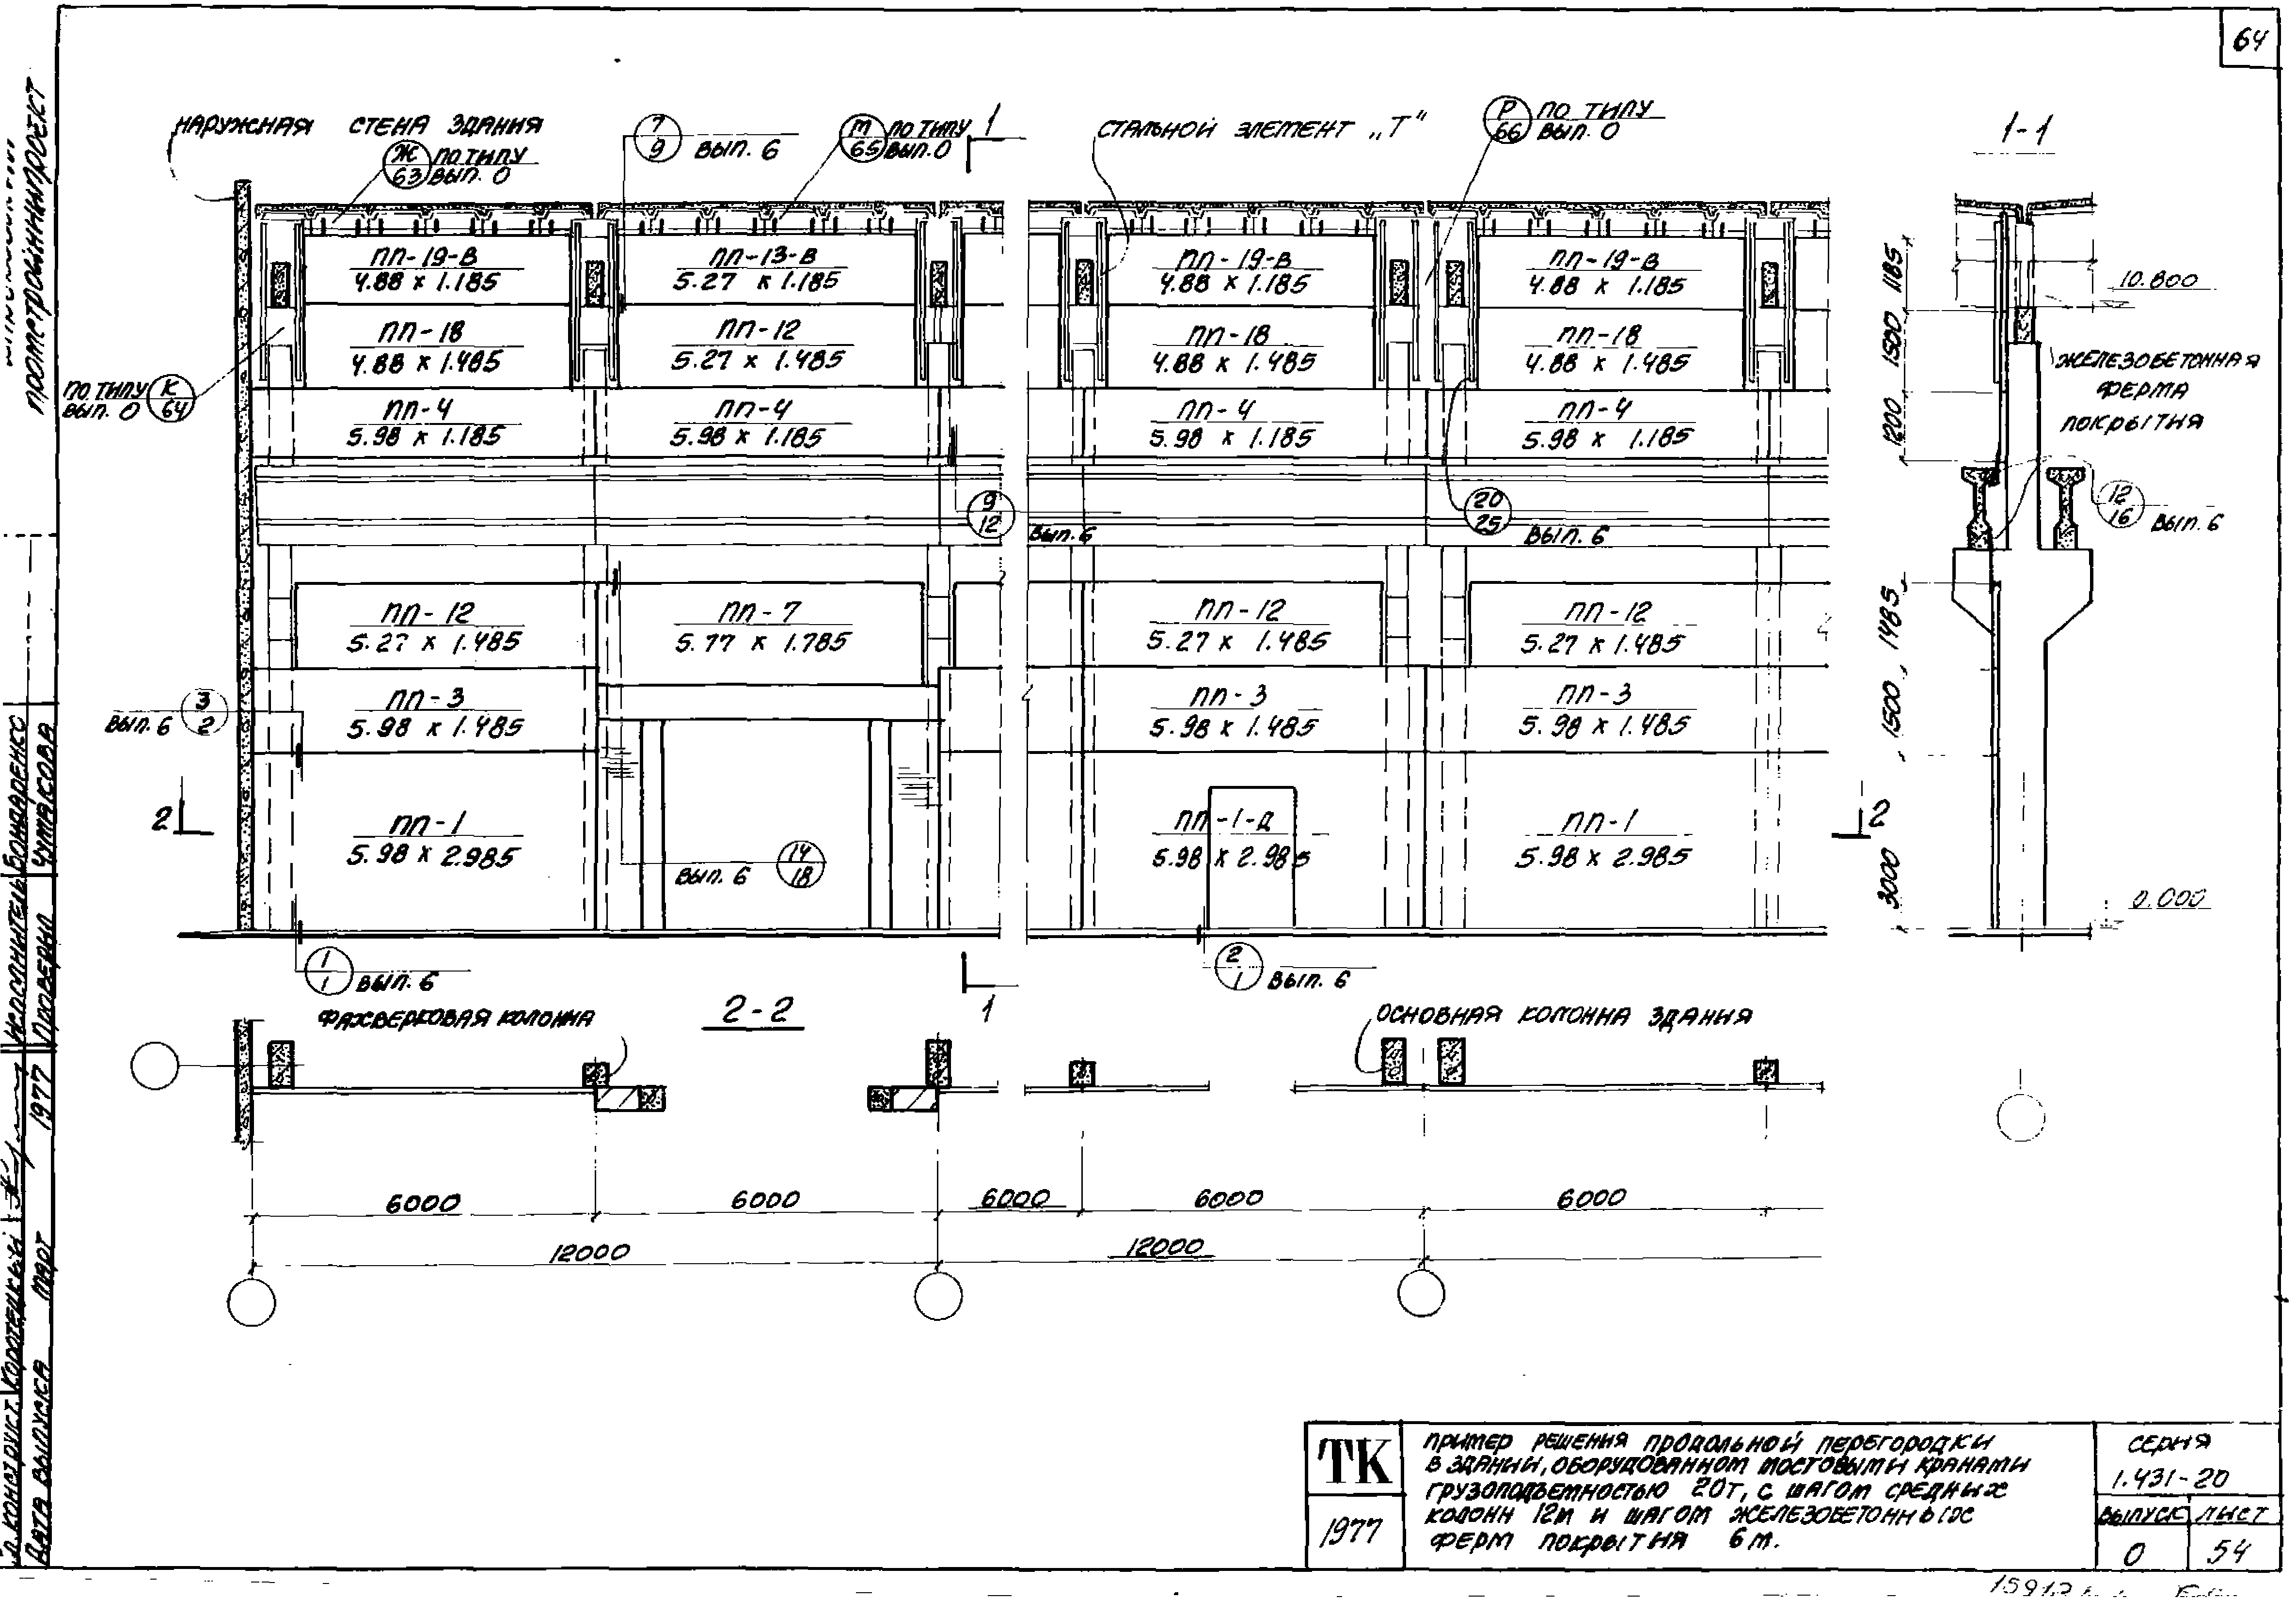 64
НАРУЖНАЯ СТЕНА ЗДАНИЯ
Ж ПО ТИПУ
63 ВЫП. 0
7
9 ВЫП. 6
М ПО ТИПУ
65 ВЫП. 0
1
СТАЛЬНОЙ ЭЛЕМЕНТ „Т"
Р ПО ТИПУ
66 ВЫП. 0
1-1
ПП-19-В
4.88 х 1.185
ПП-13-В
5.27 х 1.185
ПП-19-В
4.88 х 1.185
ПП-19-В
4.88 х 1.185
ПП-18
4.88 х 1.485
ПП-12
5.27 х 1.485
ПП-18
4.88 х 1.485
ПП-18
4.88 х 1.485
ПО ТИПУ К
ВЫП. 0 64
ПП-4
5.98 х 1.185
ПП-4
5.98 х 1.185
ПП-4
5.98 х 1.185
ПП-4
5.98 х 1.185
1185
1500
1200
10.800
ЖЕЛЕЗОБЕТОННАЯ
ФЕРМА
ПОКРЫТИЯ
9
12
ВЫП. 6
20
25
ВЫП. 6
12
16 ВЫП. 6
ПП-12
5.27 х 1.485
ПП-7
5.77 х 1.785
ПП-12
5.27 х 1.485
ПП-12
5.27 х 1.485
3
ВЫП. 6 2
ПП-3
5.98 х 1.485
ПП-3
5.98 х 1.485
ПП-3
5.98 х 1.485
1485
1500
3000
2
ПП-1
5.98 х 2.985
14
ВЫП. 6 18
ПП-1-Д
5.98 х 2.985
ПП-1
5.98 х 2.985
2
0.000
1
1 ВЫП. 6
2
1 ВЫП. 6
1
ФАХВЕРКОВАЯ КОЛОННА
2-2
ОСНОВНАЯ КОЛОННА ЗДАНИЯ
6000
6000
6000
6000
6000
12000
12000
ТК
1977
ПРИМЕР РЕШЕНИЯ ПРОДОЛЬНОЙ ПЕРЕГОРОДКИ
В ЗДАНИИ, ОБОРУДОВАННОМ МОСТОВЫМИ КРАНАМИ
ГРУЗОПОДЪЕМНОСТЬЮ 20Т, С ШАГОМ СРЕДНИХ
КОЛОНН 12М И ШАГОМ ЖЕЛЕЗОБЕТОННЫХ
ФЕРМ ПОКРЫТИЯ 6 М.
СЕРИЯ
1.431-20
ВЫПУСК ЛИСТ
0 54
ПРОМСТРОЙНИИПРОЕКТ
ИСПОЛНИТЕЛЬ БОНДАРЕНКО
ПРОВЕРИЛ ЧУМАКОВА
КОНСТРУКТ. КОРОТЕЦКИЙ
ДАТА ВЫПУСКА МАРТ 1977